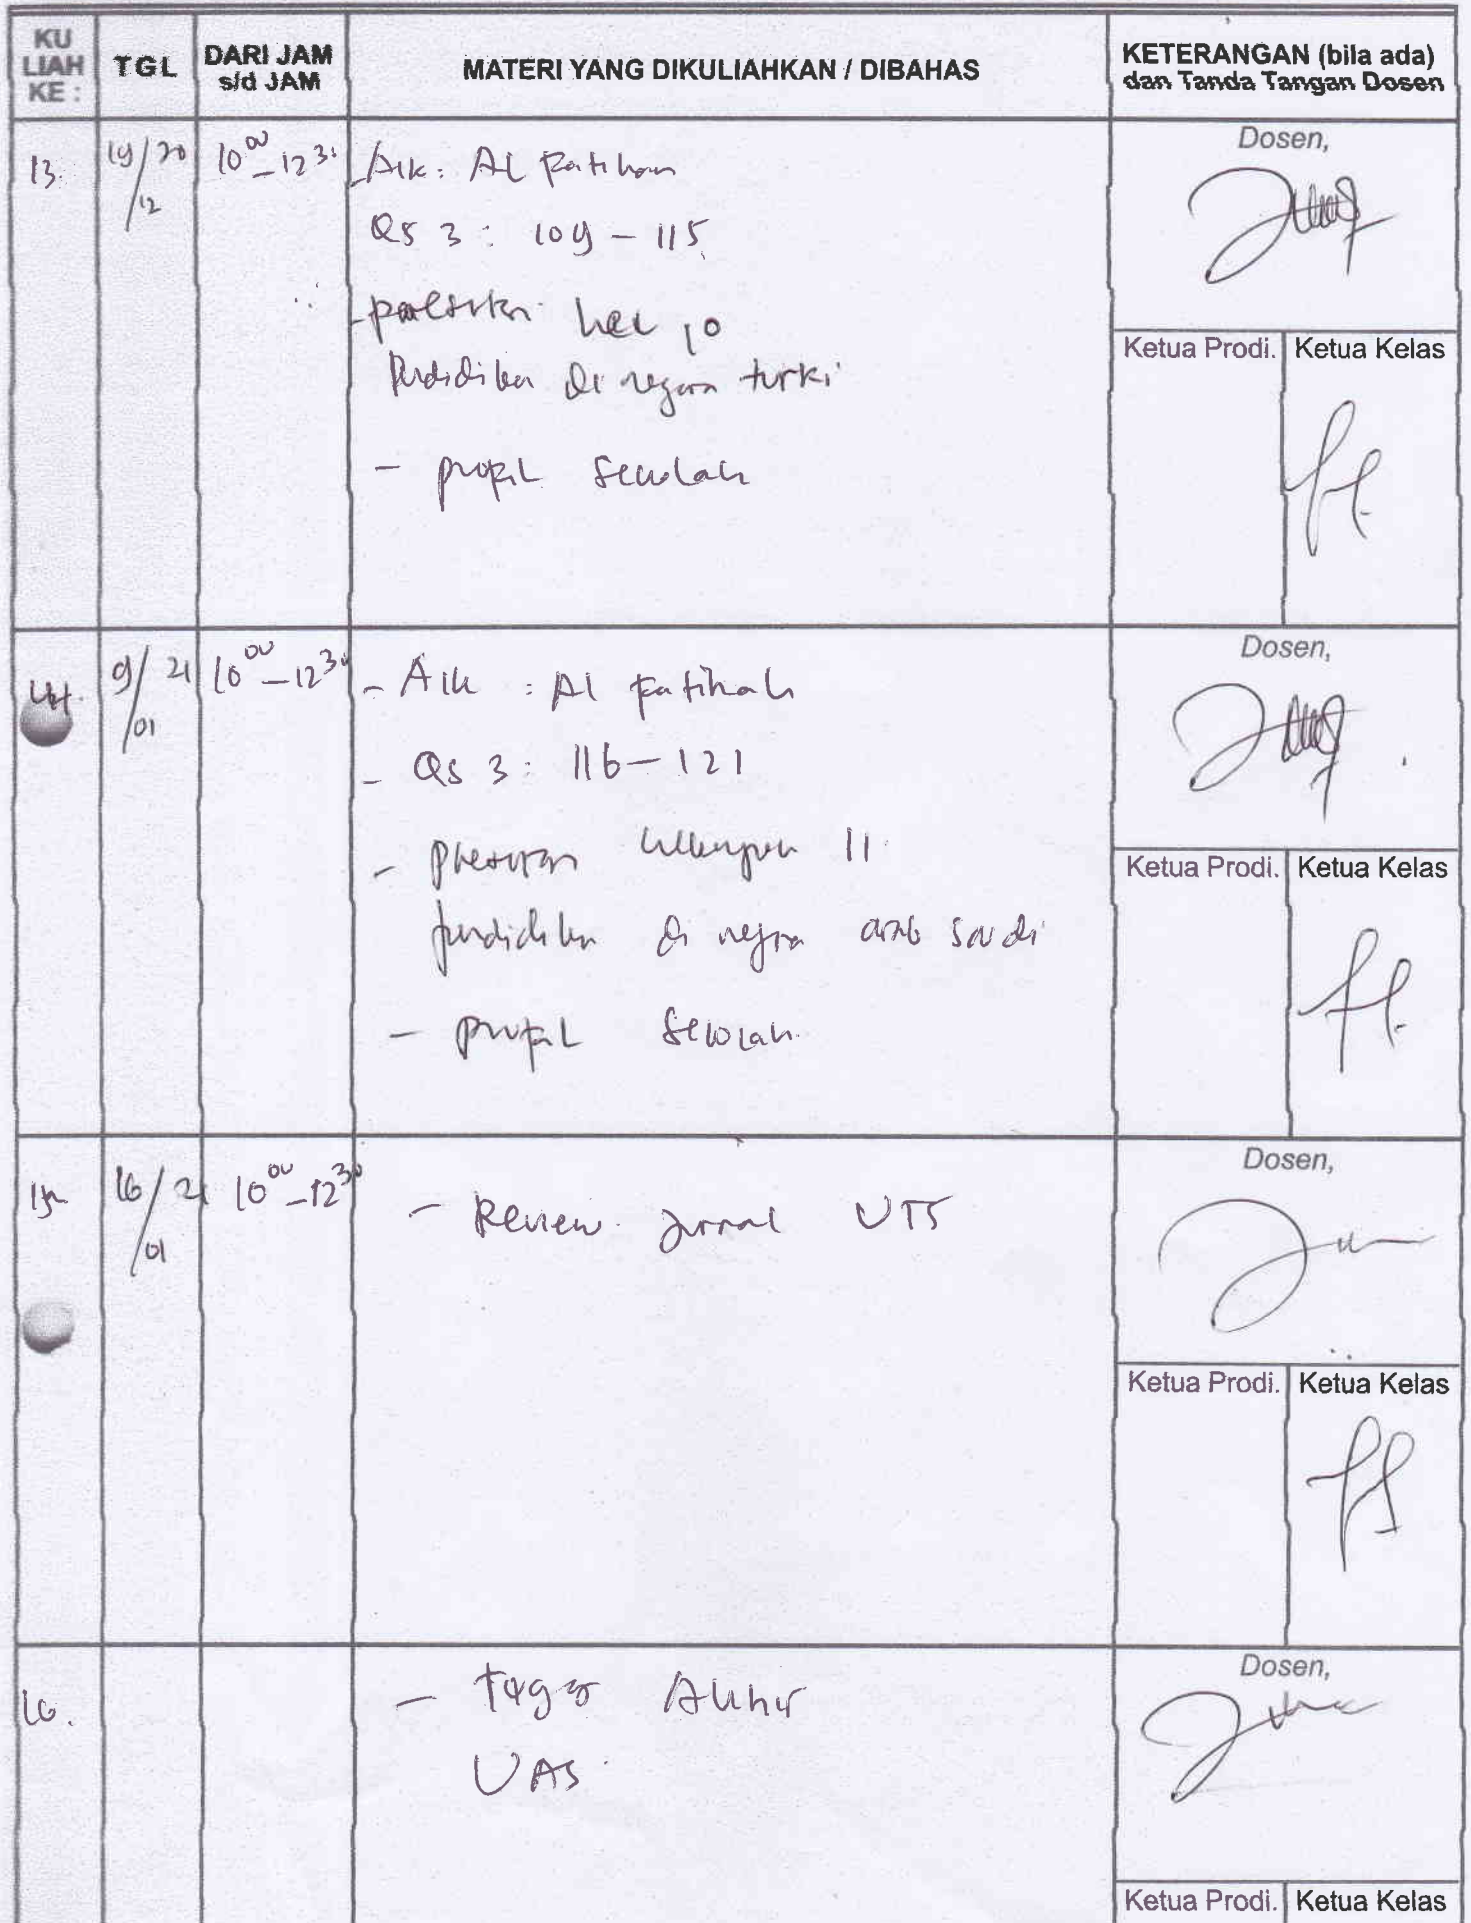 KU LIAH KE : TGL DARI JAM s/d JAM MATERI YANG DIKULIAHKAN / DIBAHAS KETERANGAN (bila ada) dan Tanda Tangan Dosen
13. 19/20 /12 10 00 - 12 30 - Aik : Al Fatihah
Qs 3 : 109 - 115
- hel 10
di negara turki
- profil sekolah
Dosen,
Ketua Prodi. Ketua Kelas
14. 9/21 /01 10 00 - 12 30 - Aik : Al Fatihah
- Qs 3 : 116 - 121
- 11
di negra arab Saudi
- profil sekolah
Dosen,
Ketua Prodi. Ketua Kelas
15 16/21 /01 10 00 - 12 30 - Review jurnal UTS
Dosen,
Ketua Prodi. Ketua Kelas
16. - Tugas Akhir
UAS
Dosen,
Ketua Prodi. Ketua Kelas